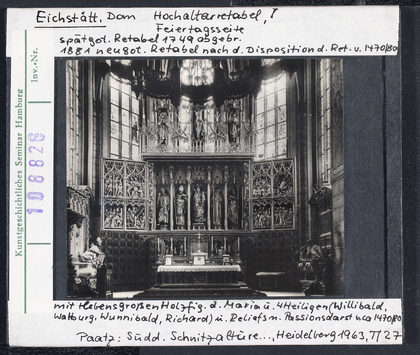 Eichstätt, Dom Hochaltarretabel,
Feiertagsseite
spätgot. Retabel 1749 abgebr.
1881 neugot. Retabel nach d. Disposition d. Ret. v. 1470/80
Inv.-Nr.
108826
Kunstgeschichtliches Seminar Hamburg
mit 4 lebensgroßen Holzfig. d. Maria u. 4 Heiligen (Willibald,
Walburg, Wunnibald, Richard) u. Reliefs m. Passionsdarst. uca 1470/80
Paatz: Südd. Schnitzaltäre..., Heidelberg 1963, T/27